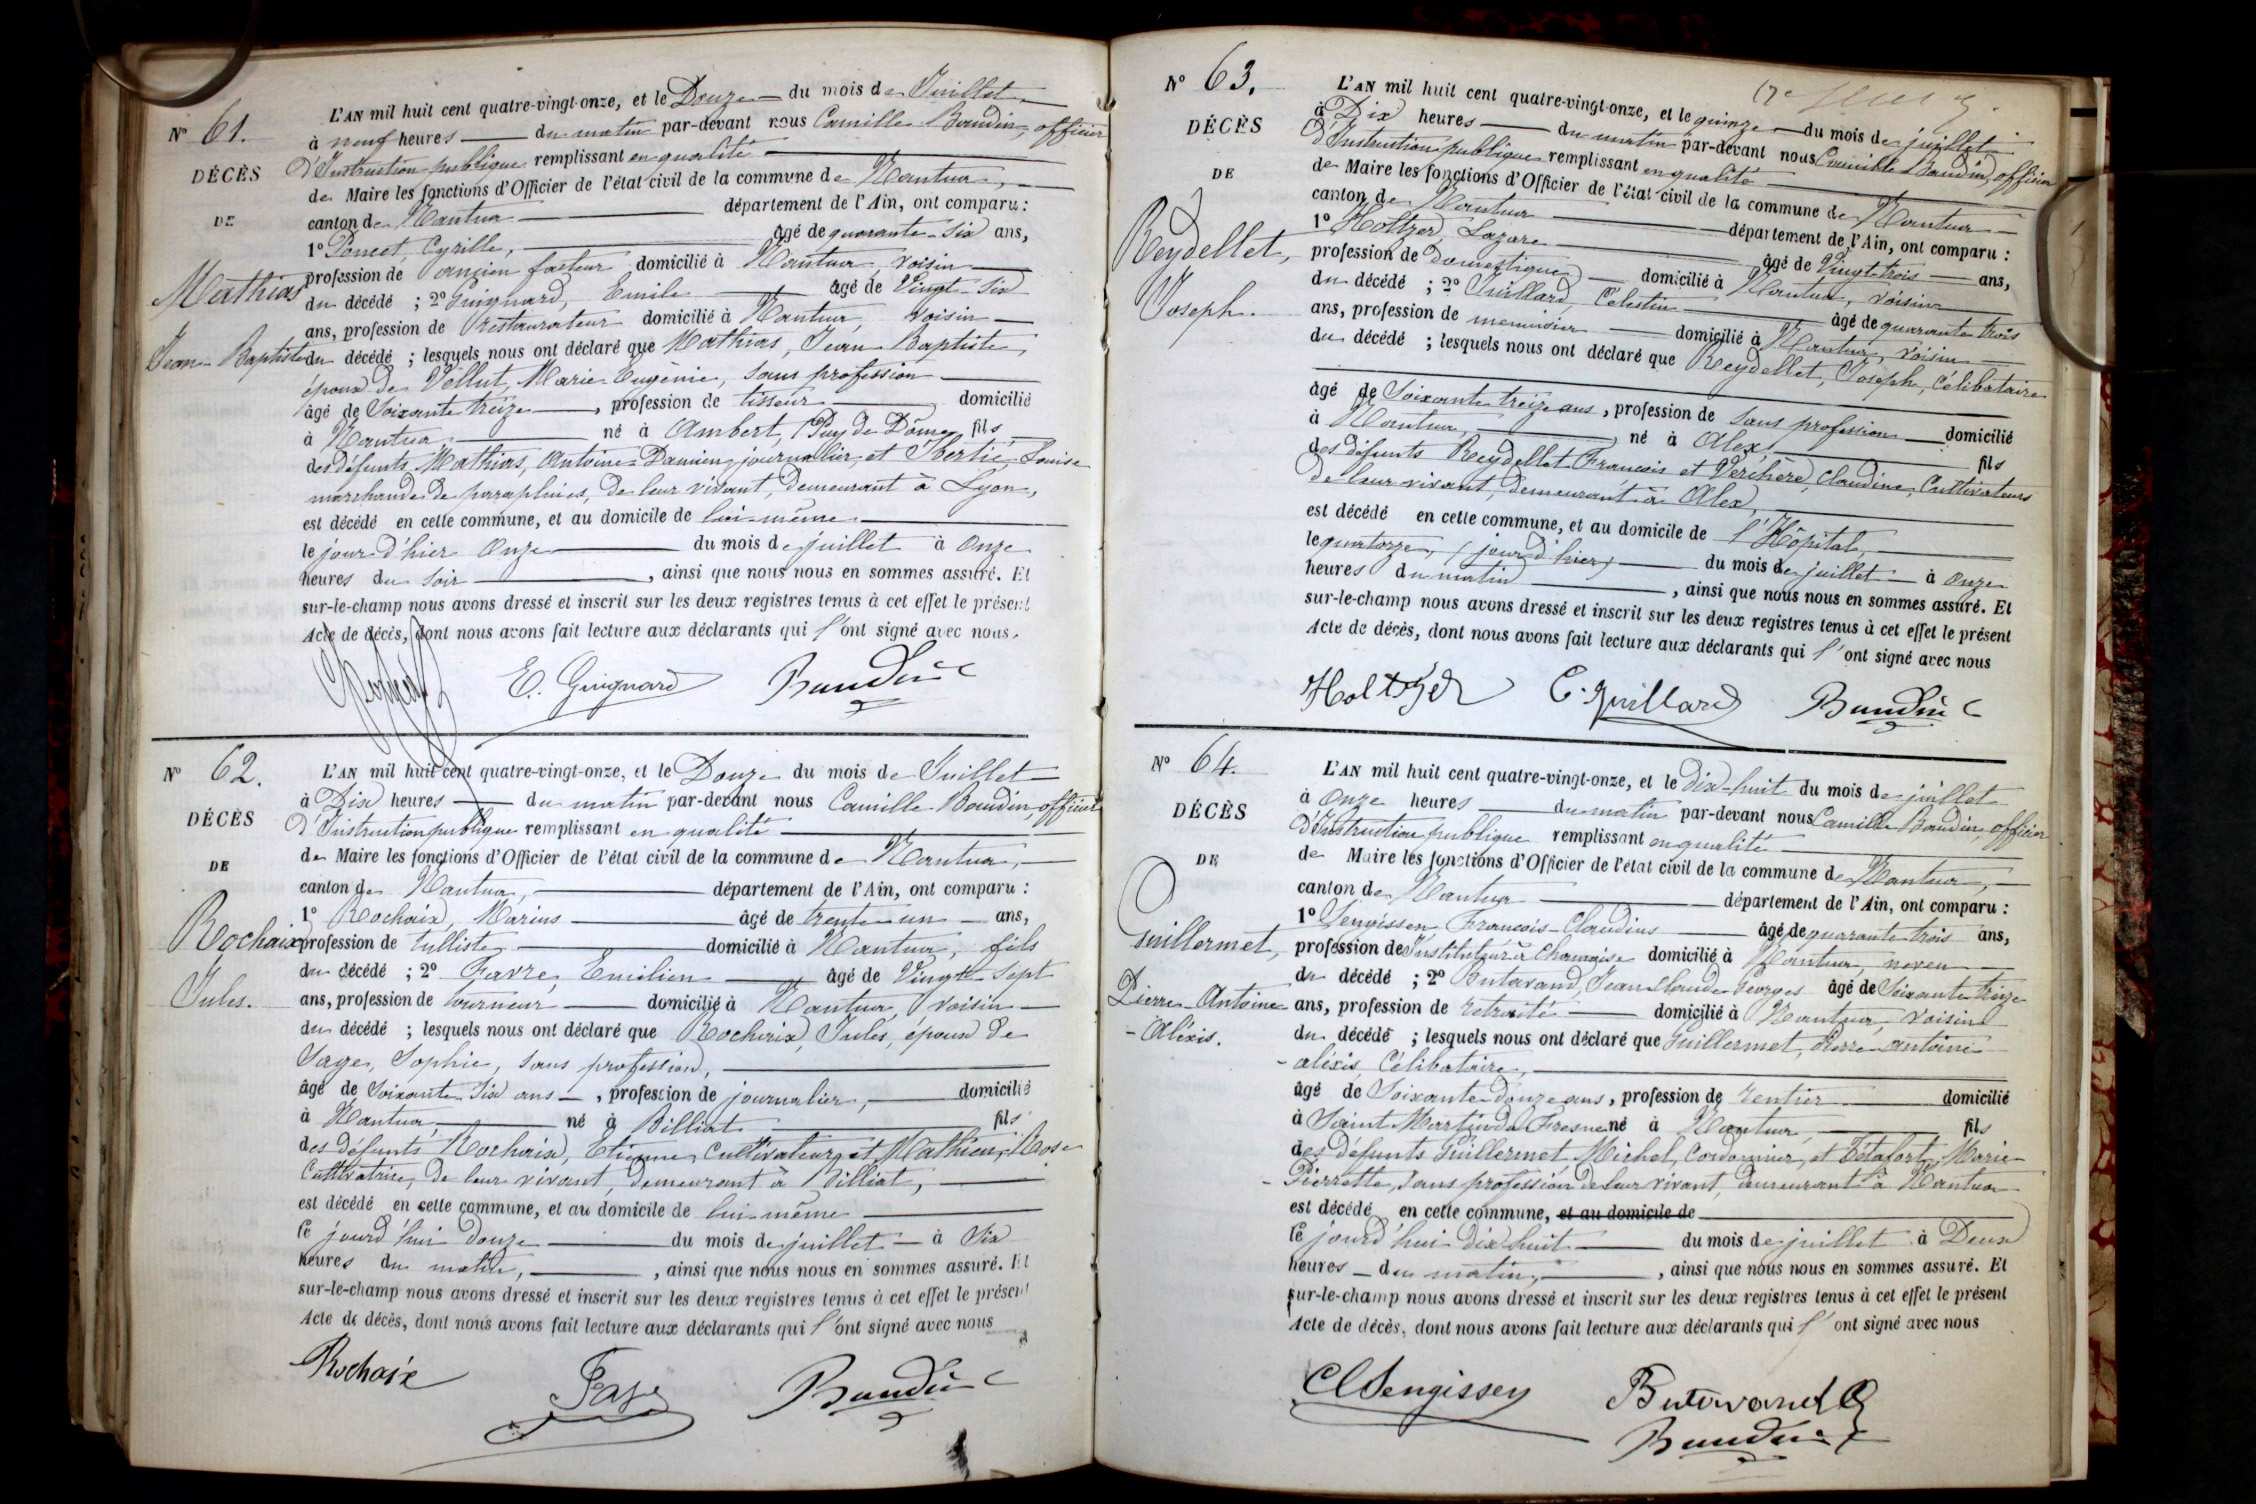 N° 61.
DÉCÈS
DE
Mathias
Jean-Baptiste
L'AN mil huit cent quatre-vingt-onze, et le Douze du mois de Juillet
à neuf heures du matin par-devant nous Camille Baudin, officier
d'Instruction publique remplissant en qualité
de Maire les fonctions d'Officier de l'état civil de la commune de Nantua,
canton de Nantua département de l'Ain, ont comparu :
1° Poncet, Cyrille, âgé de quarante-six ans,
profession de ancien facteur domicilié à Nantua, voisin
du décédé ; 2° Guignard, Emile âgé de Vingt-six
ans, profession de restaurateur domicilié à Nantua, voisin
du décédé ; lesquels nous ont déclaré que Mathias, Jean-Baptiste,
époux de Vellut, Marie Eugénie, sans profession
âgé de Soixante treize, profession de tisseur domicilié
à Nantua, né à Ambert, (Puy de Dôme) fils
des défunts Mathias, Antoine-Damien, journalier, et Louise
marchande de parapluies, de leur vivant, demeurant à Lyon,
est décédé en cette commune, et au domicile de lui-même
le jour d'hier Onze du mois de juillet à Onze
heures du soir, ainsi que nous nous en sommes assuré. Et
sur-le-champ nous avons dressé et inscrit sur les deux registres tenus à cet effet le présent
Acte de décès, dont nous avons fait lecture aux déclarants qui l'ont signé avec nous.
E. Guignard Baudin
N° 62.
DÉCÈS
DE
Rochaix
Jules.
L'AN mil huit cent quatre-vingt-onze, et le Douze du mois de Juillet
à Dix heures du matin par-devant nous Camille Baudin, officier
d'Instruction publique remplissant en qualité
de Maire les fonctions d'Officier de l'état civil de la commune de Nantua,
canton de Nantua, département de l'Ain, ont comparu :
1° Rochaix, Marius âgé de trente-un ans,
profession de tulliste domicilié à Nantua, fils
du décédé ; 2° Favre, Emilien âgé de Vingt-sept
ans, profession de tourneur domicilié à Nantua, voisin
du décédé ; lesquels nous ont déclaré que Rochaix, Jules, époux de
Sage, Sophie, sans profession,
âgé de Soixante-six ans, profession de journalier, domicilié
à Nantua, né à Billiat fils
des défunts Rochaix, Etienne, cultivateur, et Mathieu, Rose
cultivatrice, de leur vivant, demeurant à Billiat,
est décédé en cette commune, et au domicile de lui-même
le jourd'hui douze du mois de juillet à Six
heures du matin, ainsi que nous nous en sommes assuré. Et
sur-le-champ nous avons dressé et inscrit sur les deux registres tenus à cet effet le présent
Acte de décès, dont nous avons fait lecture aux déclarants qui l'ont signé avec nous
Rochaix Baudin
N° 63.
DÉCÈS
DE
Reydellet,
Joseph.
L'AN mil huit cent quatre-vingt-onze, et le quinze du mois de juillet
à Dix heures du matin par-devant nous Camille Baudin, officier
d'Instruction publique remplissant en qualité
de Maire les fonctions d'Officier de l'état civil de la commune de Nantua
canton de Nantua département de l'Ain, ont comparu :
1° Holtzer, Lazare âgé de Vingt-trois ans,
profession de domestique domicilié à Nantua, voisin
du décédé ; 2° Juillard, Célestin âgé de quarante trois
ans, profession de menuisier domicilié à Nantua, voisin
du décédé ; lesquels nous ont déclaré que Reydellet, Joseph, célibataire
âgé de Soixante treize ans, profession de sans profession domicilié
à Nantua, né à Alex, fils
des défunts Reydellet François et Verchère, Claudine, Cultivateurs
de leur vivant, demeurant à Alex,
est décédé en cette commune, et au domicile de l'Hôpital,
le quatorze, (jour d'hier) du mois de juillet à Onze
heures du matin, ainsi que nous nous en sommes assuré. Et
sur-le-champ nous avons dressé et inscrit sur les deux registres tenus à cet effet le présent
Acte de décès, dont nous avons fait lecture aux déclarants qui l'ont signé avec nous
Holtzer C. Juillard Baudin
N° 64.
DÉCÈS
DE
Guillermet,
Pierre-Antoine
-Aléxis.
L'AN mil huit cent quatre-vingt-onze, et le dix-huit du mois de juillet
à Onze heures du matin par-devant nous Camille Baudin, officier
d'Instruction publique remplissant en qualité
de Maire les fonctions d'Officier de l'état civil de la commune de Nantua,
canton de Nantua département de l'Ain, ont comparu :
1° Sengissen, François-Claudius âgé de quarante trois ans,
profession de Instituteur à domicilié à Nantua, neveu
du décédé ; 2° Butavand, Jean Claude Georges âgé de Soixante treize
ans, profession de retraité domicilié à Nantua, voisin
du décédé ; lesquels nous ont déclaré que Guillermet, Pierre Antoine
-aléxis, Célibataire,
âgé de Soixante-douze ans, profession de rentier domicilié
à Saint Martin du Fresne né à Nantua, fils
des défunts Guillermet, Michel, Cordonnier, et Tétafort, Marie
-Pierrette, sans profession de leur vivant, demeurant à Nantua
est décédé en cette commune, et au domicile de
le jourd'hui dix huit du mois de juillet à Deux
heures du matin, ainsi que nous nous en sommes assuré. Et
sur-le-champ nous avons dressé et inscrit sur les deux registres tenus à cet effet le présent
Acte de décès, dont nous avons fait lecture aux déclarants qui l'ont signé avec nous
Cl Sengissen Butavand
Baudin